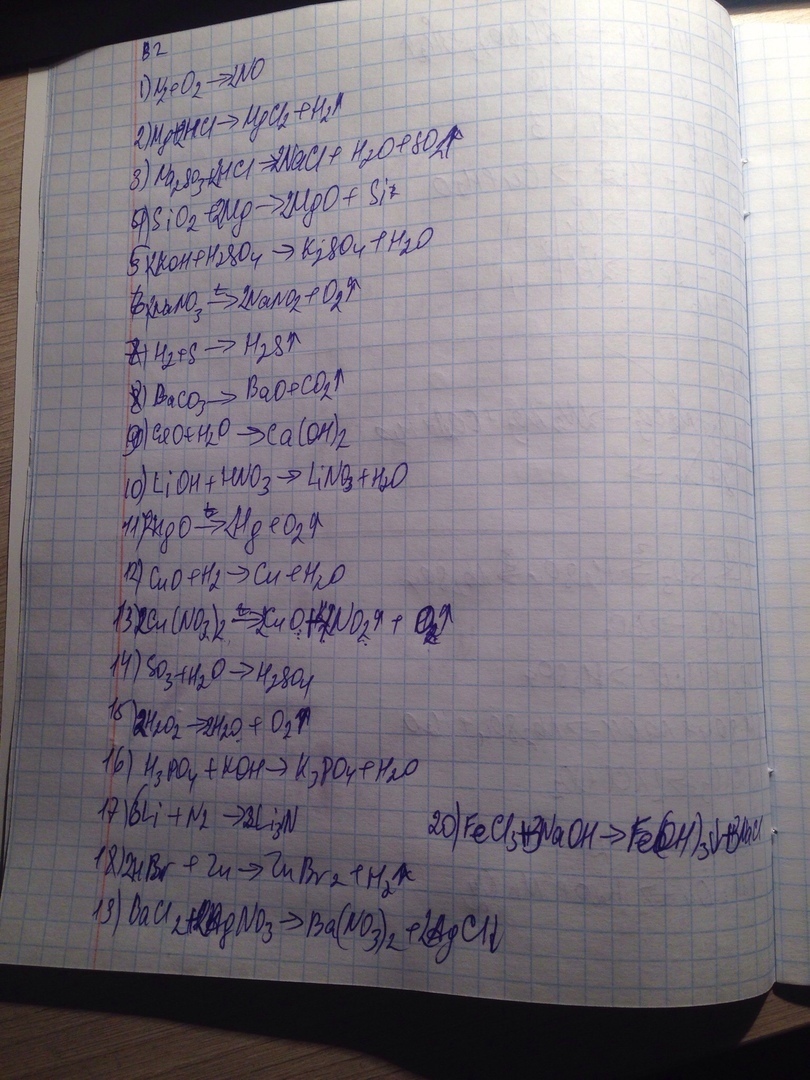 В2
1) N2+O2→2NO
2) Mg+2HCl→MgCl2+H2↑
3) Na2SO3+2HCl→2NaCl+H2O+SO2↑
4) SiO2+2Mg→2MgO+Si
5) 2KOH+H2SO4→K2SO4+H2O
6) 2NaNO3 t→ 2NaNO2+O2↑
7) H2+S→H2S↑
8) BaCO3→BaO+CO2↑
9) CaO+H2O→Ca(OH)2
10) LiOH+HNO3→LiNO3+H2O
11) 2HgO t→ 2Hg+O2↑
12) CuO+H2→Cu+H2O
13) 2Cu(NO3)2 t→ 2CuO+4NO2↑+O2↑
14) SO3+H2O→H2SO4
15) 2H2O2→2H2O+O2↑
16) H3PO4+KOH→K3PO4+H2O
17) 6Li+N2→2Li3N
20) FeCl3+3NaOH→Fe(OH)3↓+3NaCl
18) 2HBr+Zn→ZnBr2+H2↑
19) BaCl2+2AgNO3→Ba(NO3)2+2AgCl↓